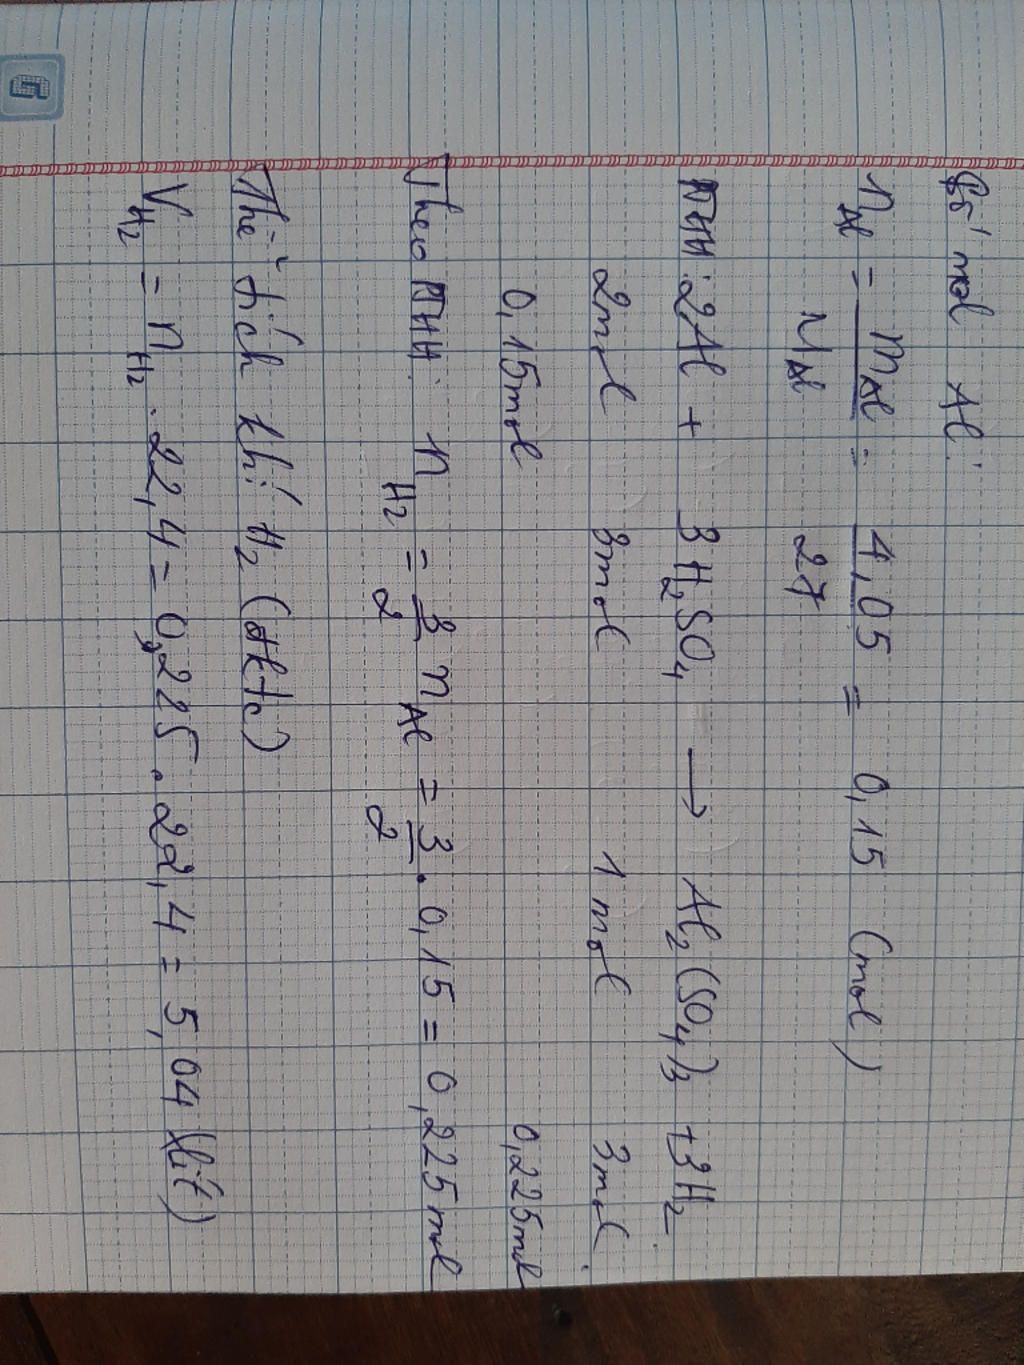 Số mol Al:
nAl = mAl / MAl = 4,05 / 27 = 0,15 (mol)
PTHH: 2Al + 3H₂SO₄ → Al₂(SO₄)₃ + 3H₂
2mol 3mol 1 mol 3mol.
0,15mol 0,225mol
Theo PTHH: nH₂ = 3/2 nAl = 3/2 . 0,15 = 0,225 mol
Thể tích khí H₂ (đktc)
VH₂ = nH₂ . 22,4 = 0,225 . 22,4 = 5,04 (lít)